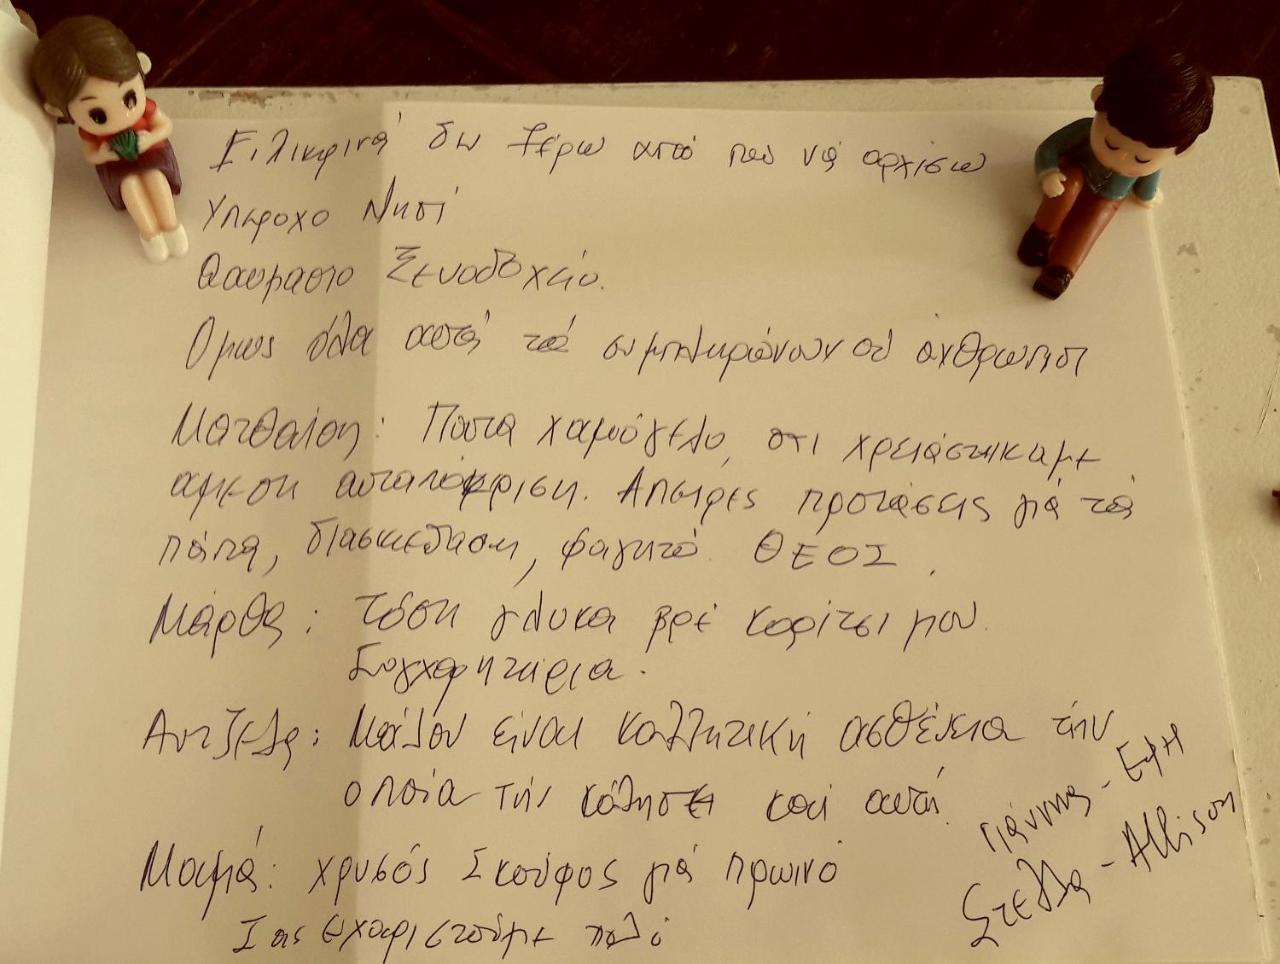 Ειλικρινά δεν ξέρω από που νά αρχίσω
Υπεροχο Νησί
Θαυμαστο Ξενοδοχείο.
Ομως όλα αυτά τά συμπληρώνουν οί άνθρωποι
Ματθαίος: Παντα χαμόγελο, οτι χρειάστηκαμε
αμεση ανταπόκριση. Απειρες προτάσεις γιά τά
πάντα, διασκεδαση, φαγητό. ΘΕΟΣ.
Μάρθα: τόση γλυκα βρέ κορίτσι μου.
Συγχαρητήρια.
Αντζελα: Μάλον είναι κολλητική ασθένεια τήν
οποία τήν κόλησε καί αυτή.
Μαμά: χρυσός Σκούφος γιά πρωινό
Σας ευχαριστούμε πολύ
Γιάννης - Εφη
Στέλλα - Allison